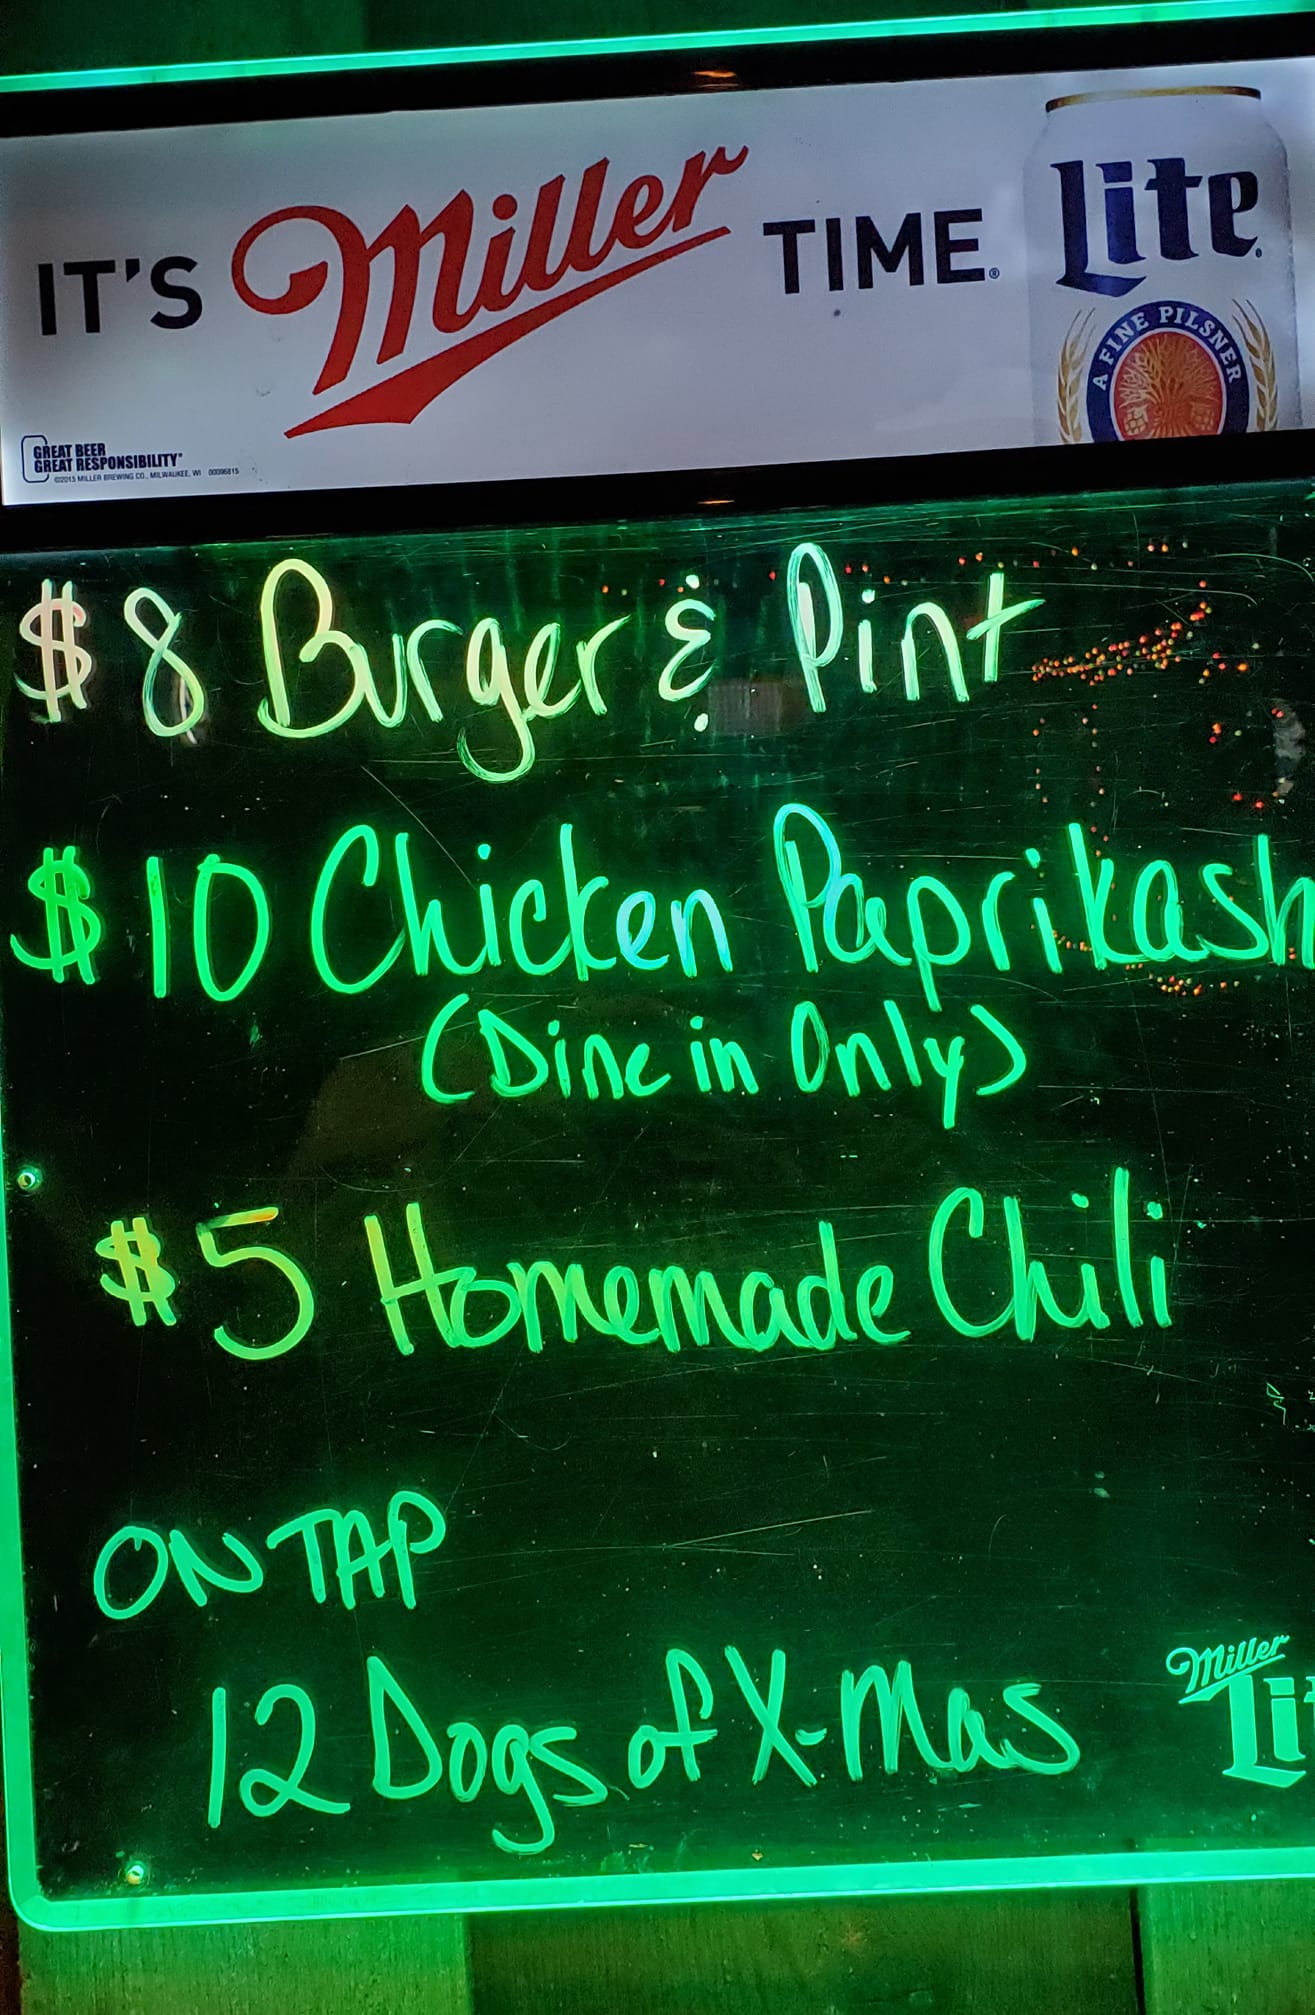 IT'S Miller TIME.®
Lite
A FINE PILSNER
GREAT BEER
GREAT RESPONSIBILITY®
©2015 MILLER BREWING CO., MILWAUKEE, WI 00096815
$8 Burger & Pint
$10 Chicken Paprikash
(Dine in Only)
$5 Homemade Chili
ON TAP
12 Dogs of X-Mas
Miller
Lit